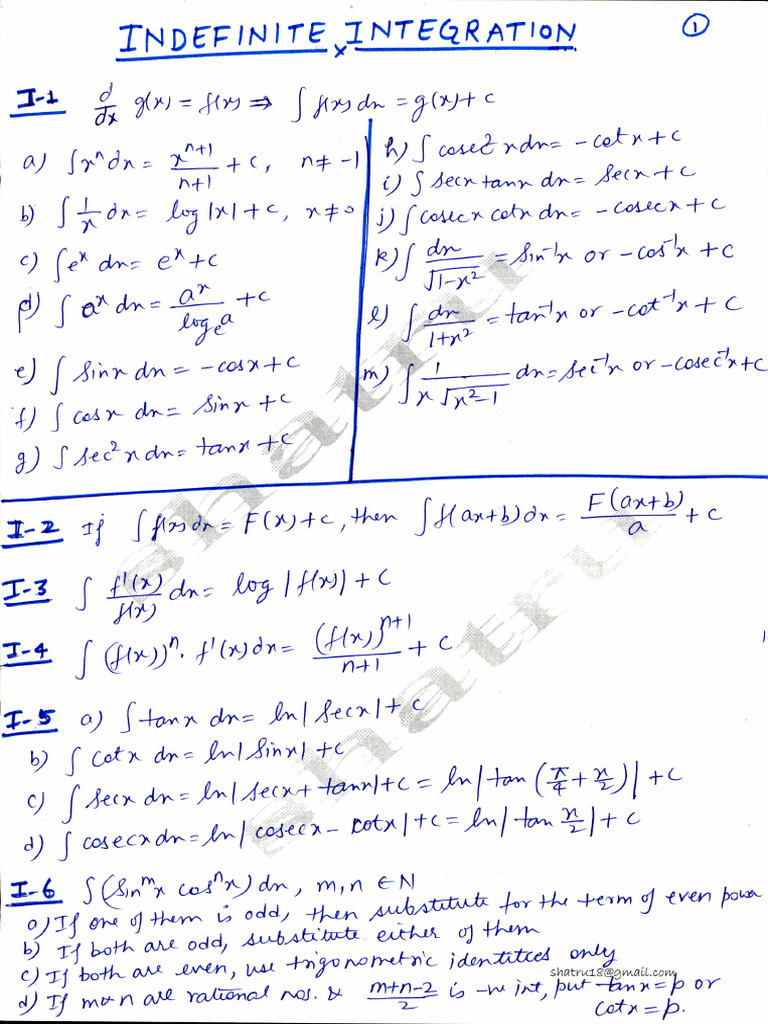 INDEFINITE INTEGRATION
①
I-1 d/dx g(x) = f(x) ⇒ ∫ f(x) dx = g(x) + c
a) ∫ xⁿ dx = xⁿ⁺¹/n+1 + c, n ≠ -1
b) ∫ 1/x dx = log |x| + c, x ≠ 0
c) ∫ eˣ dx = eˣ + c
d) ∫ aˣ dx = aˣ/logₑa + c
e) ∫ sinx dx = -cosx + c
f) ∫ cosx dx = sinx + c
g) ∫ sec²x dx = tanx + c
h) ∫ cosec²x dx = -cotx + c
i) ∫ secx tanx dx = secx + c
j) ∫ cosecx cotx dx = -cosecx + c
k) ∫ dx/√1-x² = sin⁻¹x or -cos⁻¹x + c
l) ∫ dx/1+x² = tan⁻¹x or -cot⁻¹x + c
m) ∫ 1/x√x²-1 dx = sec⁻¹x or -cosec⁻¹x + c
I-2 If ∫ f(x) dx = F(x) + c, then ∫ f(ax+b) dx = F(ax+b)/a + c
I-3 ∫ f'(x)/f(x) dx = log |f(x)| + c
I-4 ∫ (f(x))ⁿ. f'(x) dx = (f(x))ⁿ⁺¹/n+1 + c
I-5 a) ∫ tanx dx = ln| secx| + c
b) ∫ cotx dx = ln| sinx| + c
c) ∫ secx dx = ln| secx + tanx| + c = ln| tan (π/4 + x/2)| + c
d) ∫ cosecx dx = ln| cosecx - cotx| + c = ln| tan x/2| + c
I-6 ∫ (sinᵐx cosⁿx) dx, m, n ∈ N
a) If one of them is odd, then substitute for the term of even power
b) If both are odd, substitute either of them
c) If both are even, use trigonometric identities only
d) If m & n are rational nos. & m+n-2/2 is -ve int, put tanx = p or
cotx = p.
shatru18@gmail.com
shatru
shatru